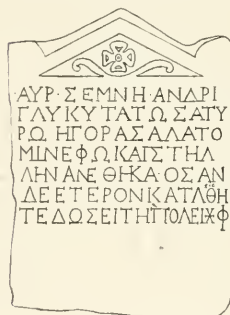 ΑΥΡ·ΣΕΜΝΗ·ΑΝΔΡΙ
ΓΛΥΚΥΤΑΤΩΣΑΤΥ
ΡΩΗΓΟΡΑΣΑΛΑΤΟ
ΜΙΝΕΦΩΚΑΙΣΤΗΛ
ΛΗΝΑΝΕΘΗΚΑ·ΟΣΑΝ
ΔΕΕΤΕΡΟΝΚΑΤΑΘΗ
ΤΕΔΩΣΕΙΤΗΠΟΛΕΙΧΦ